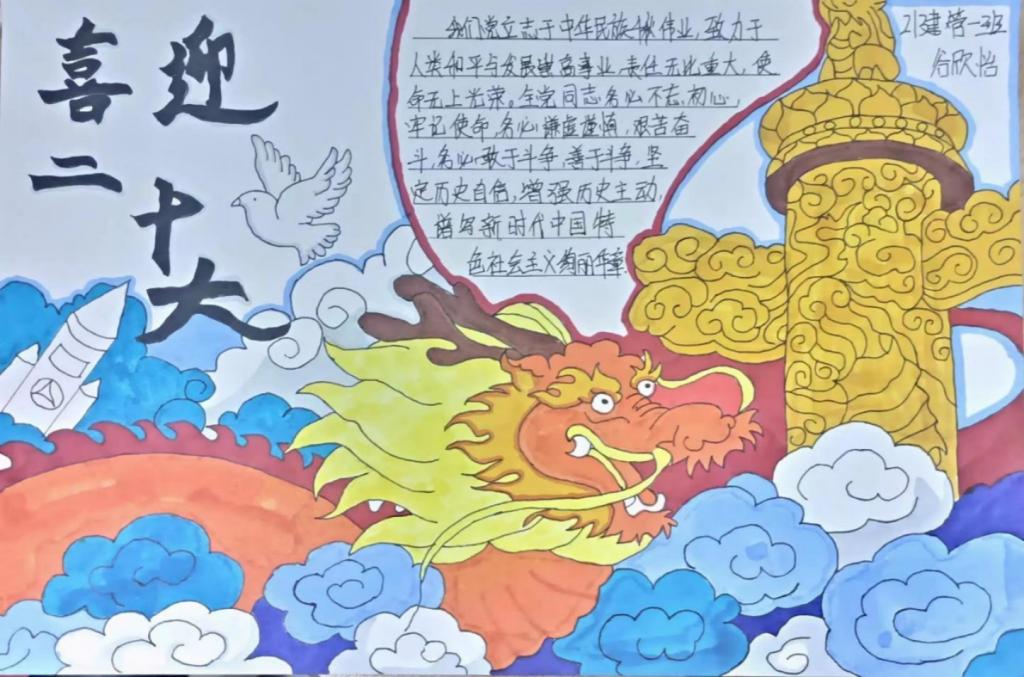 喜迎
二十大
我们党立志于中华民族千秋伟业,致力于
人类和平与发展崇高事业,责任无比重大,使
命无上光荣。全党同志务必不忘初心,
牢记使命,务必谦虚谨慎,艰苦奋
斗,务必敢于斗争,善于斗争,坚
定历史自信,增强历史主动,
谱写新时代中国特
色社会主义绚丽华章.
21建管一班
谷欣怡